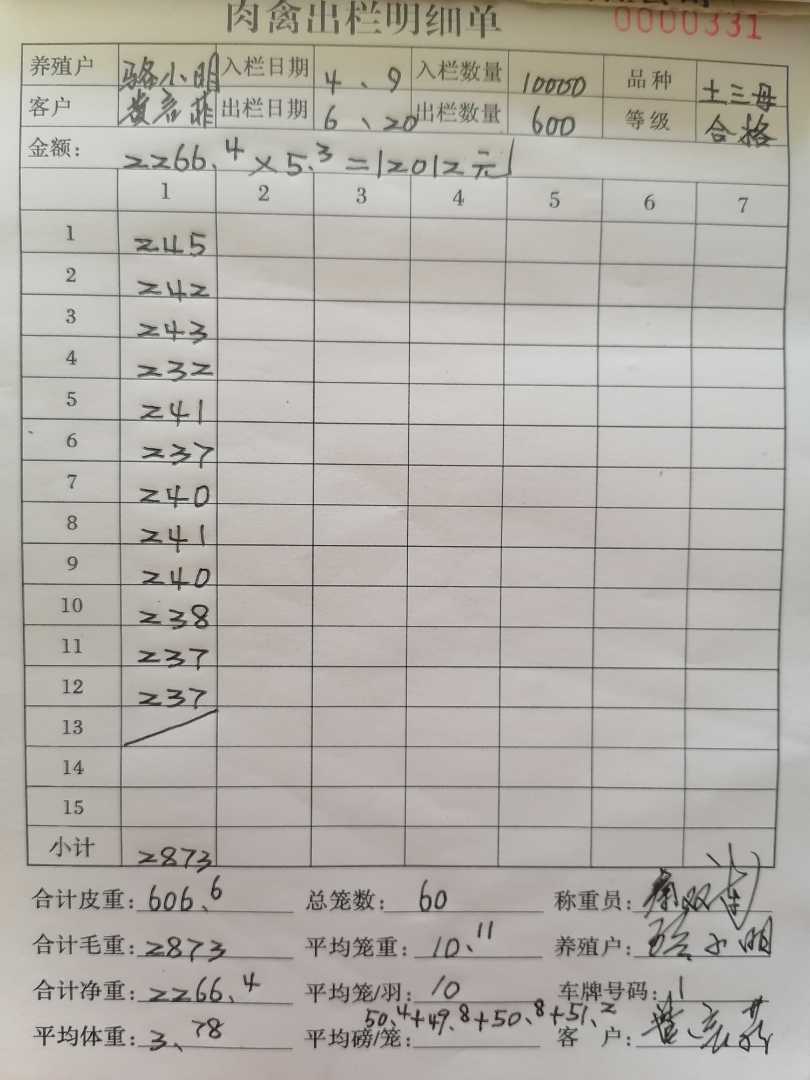 肉禽出栏明细单
0000331
养殖户 骆小明 入栏日期 4、9 入栏数量 10000 品种 土三母
客户 出栏日期 6、20 出栏数量 600 等级 合格
金额: 2266.4×5.3=12012元
1 2 3 4 5 6 7
1 245
2 242
3 243
4 232
5 241
6 237
7 240
8 241
9 240
10 238
11 237
12 237
13
14
15
小计 2873
合计皮重: 606.6 总笼数: 60 称重员:
合计毛重: 2873 平均笼重: 10.11 养殖户: 骆小明
合计净重: 2266.4 平均笼/羽: 10 车牌号码: 1
平均体重: 3.78 平均磅/笼: 50.4+49.8+50.8+51.2 客户: